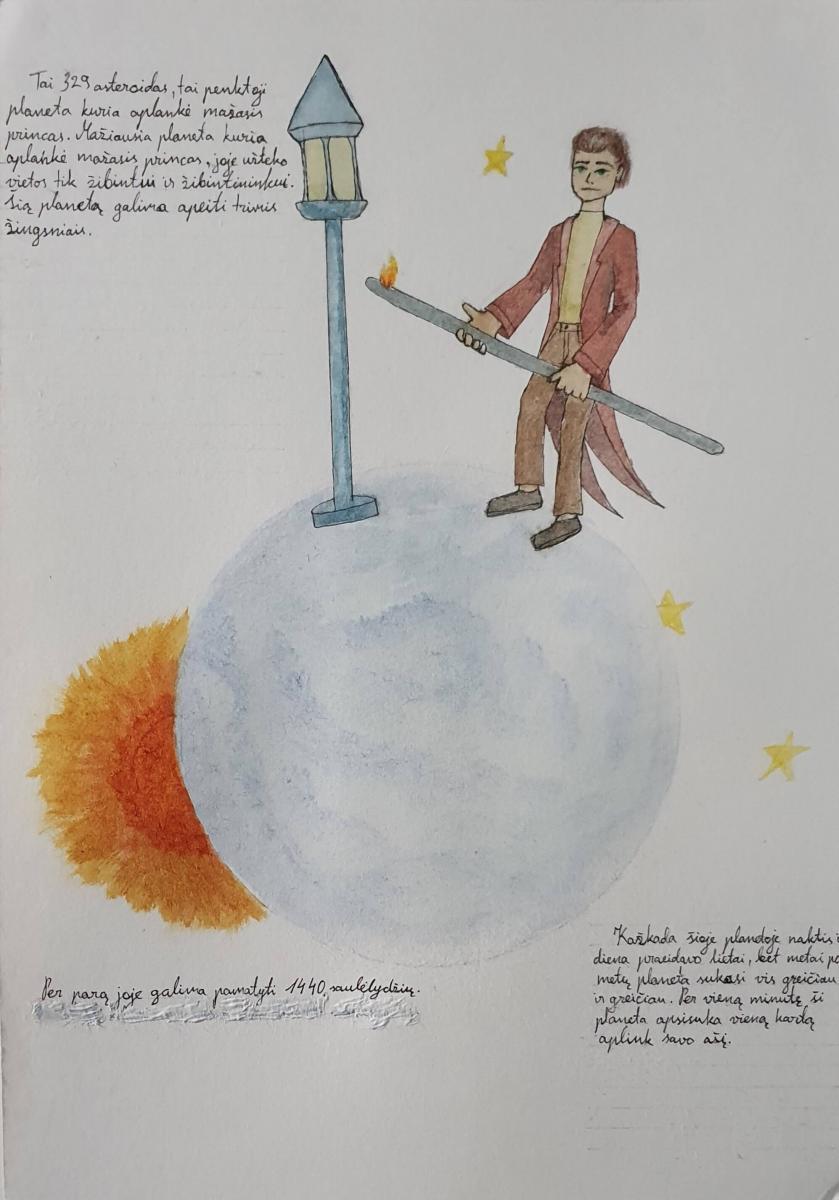 Tai 329 asteroidas, tai penktoji
planeta kuria aplankė mažasis
princas. Mažiausia planeta kuria
aplankė mažasis princas, joje užteko
vietos tik žibintui ir žibintininkui.
Šią planetą galima apeiti trimis
žingsniais.
Per parą joje galima pamatyti 1440 saulėlydžių.
Kažkada šioje planetoje naktis i
diena praeidavo lietai, bet metai po
metų planeta sukasi vis greičiau
ir greičiau. Per vieną minutę ši
planeta apsisuka vieną kartą
aplink savo ašį.